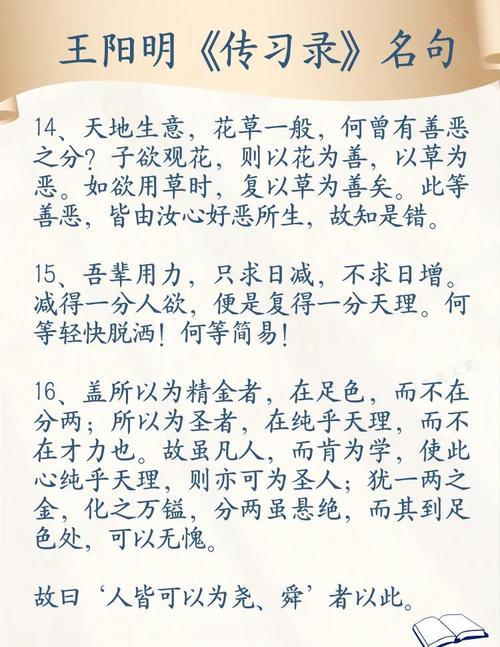 王阳明《传习录》名句
14、天地生意，花草一般，何曾有善恶
之分？子欲观花，则以花为善，以草为
恶。如欲用草时，复以草为善矣。此等
善恶，皆由汝心好恶所生，故知是错。
15、吾辈用力，只求日减，不求日增。
减得一分人欲，便是复得一分天理。何
等轻快脱洒！何等简易！
16、盖所以为精金者，在足色，而不在
分两；所以为圣者，在纯乎天理，而不
在才力也。故虽凡人，而肯为学，使此
心纯乎天理，则亦可为圣人；犹一两之
金，化之万镒，分两虽悬绝，而其到足
色处，可以无愧。
故曰‘人皆可以为尧、舜’者以此。